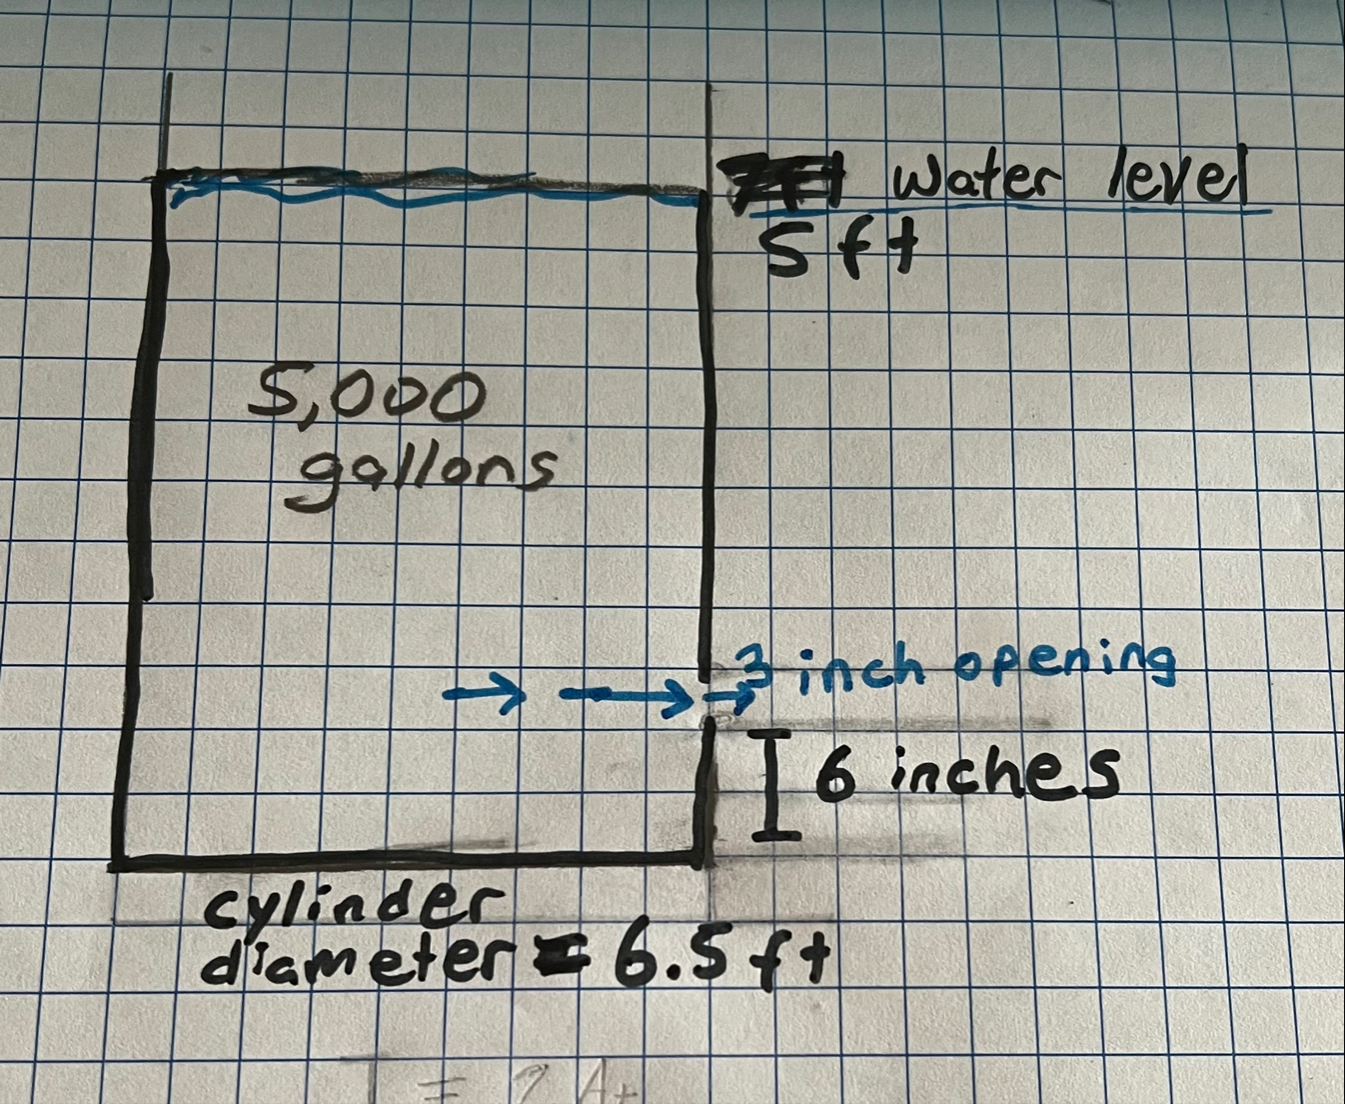 Water level
5 ft
5,000
gallons
3 inch opening
6 inches
cylinder
diameter = 6.5 ft